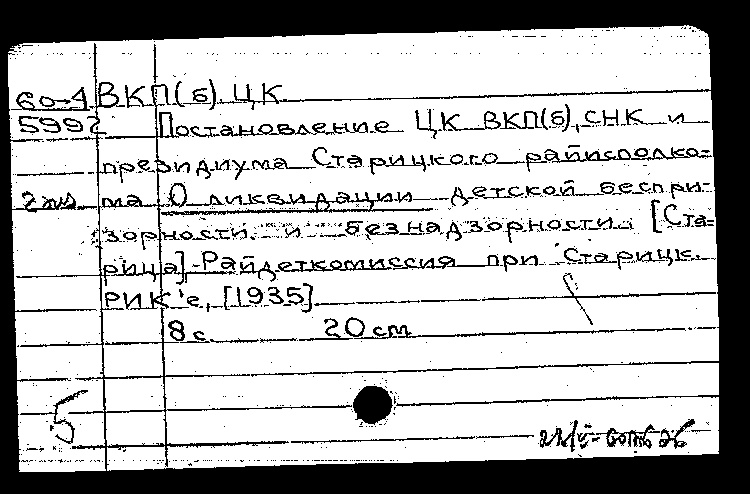 60-4 ВКП(б). ЦК.
5992 Постановление ЦК ВКП(б), СНК и
президиума Старицкого райисполко=
2 экз. ма О ликвидации детской беспри-
зорности и безнадзорности. [Ста-
рица]-Райдеткомиссия при Старицк.
РИК'е, [1935].
8 с. 20 cm
5